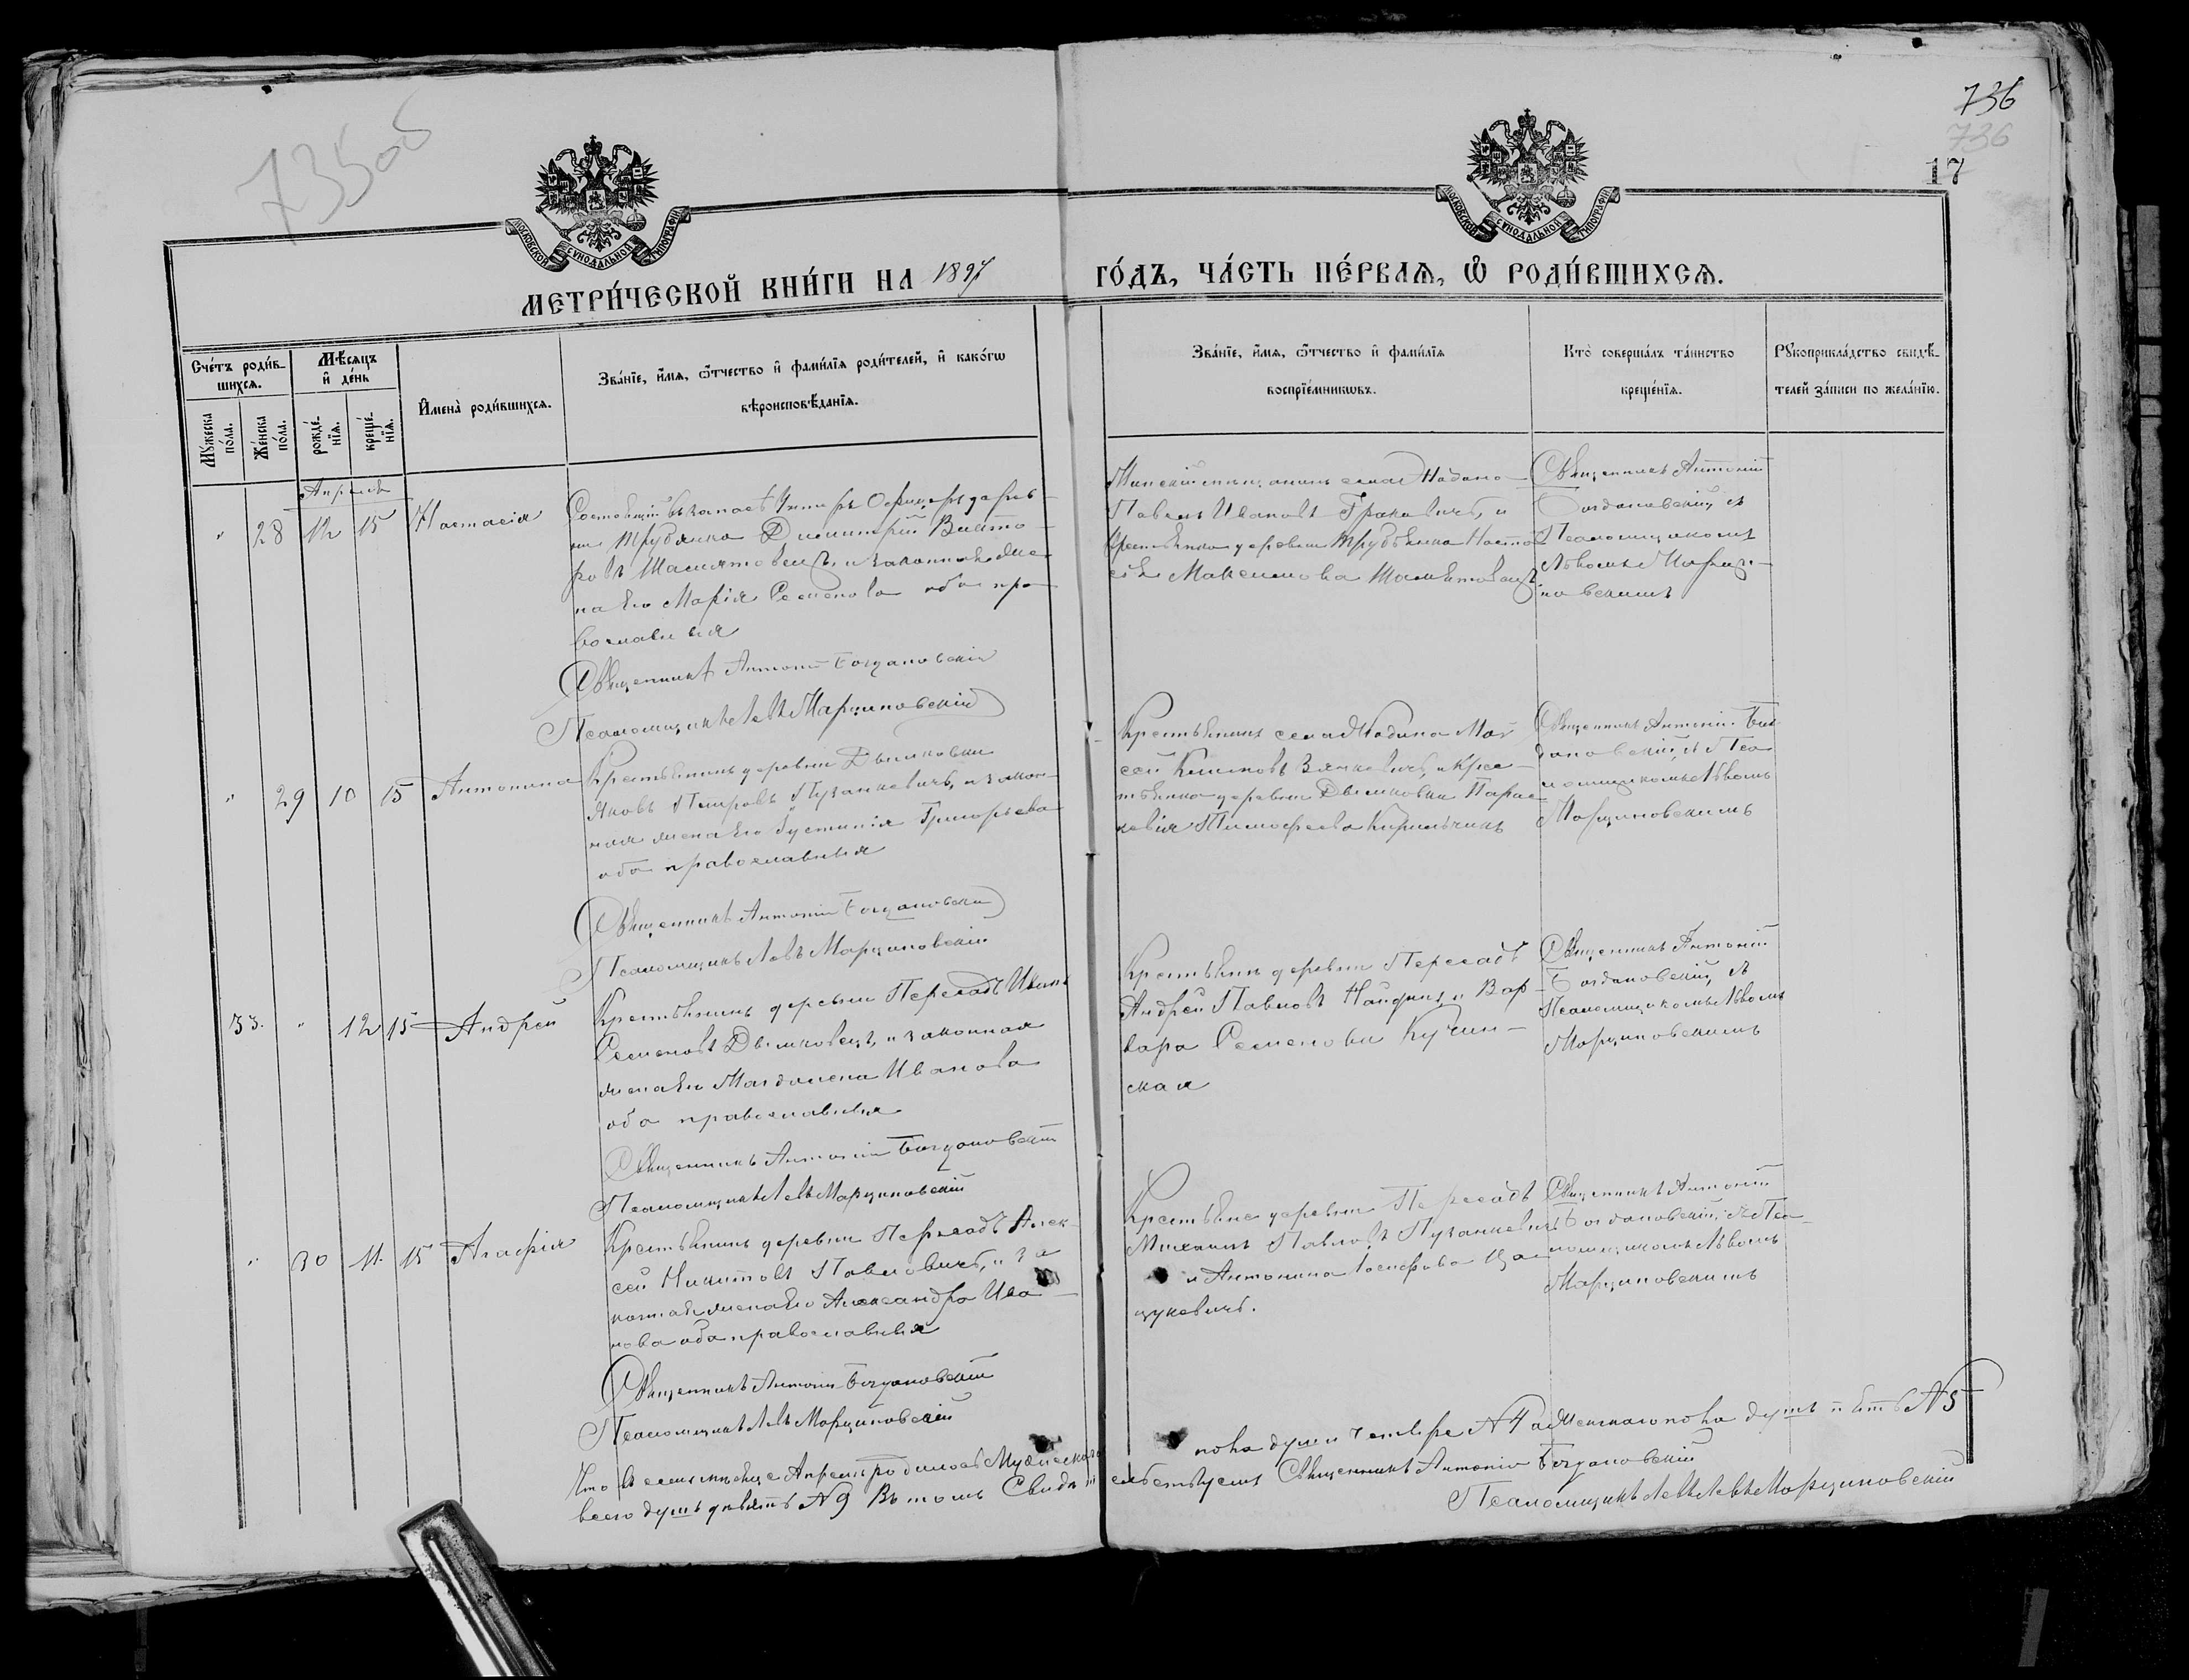 735об
736
736
17
МОСКОВСКОЙ СѴНОДАЛЬНОЙ ТИПОГРАФІИ
МОСКОВСКОЙ СѴНОДАЛЬНОЙ ТИПОГРАФІИ
МЕТРИ́ЧЕСКОЙ КНИ́ГИ НА 1897 ГО́ДЪ, ЧА́СТЬ ПЕ́РВАѦ, Ѽ РОДИ́ВШИХСѦ.
Сче́тъ роди́в-
шихсѧ.
Мꙋжеска по́ла.
Же́нска по́ла.
Мѣ́сѧцъ
и҆ де́нь
рожде́-
нїѧ.
креще́-
нїѧ.
И҆мена̀ роди́вшихсѧ.
Зва́нїе, и҆́мѧ, ѻ҆́тчество и҆ фами́лїѧ роди́телей, и҆ како́гѡ
вѣроисповѣ́данїѧ.
Зва́нїе, и҆́мѧ, ѻ҆́тчество и҆ фами́лїѧ
воспрїе́мникѡвъ.
Кто̀ соверша́лъ та́инство
креще́нїѧ.
Рꙋкоприкла́дство свидѣ́-
телей за́писи по жела́нїю.
Апрель
" 28 12 15 Настасія
Состоящій въ запасѣ Унтеръ Офицеръ дерев-
ни Трубянка Димитрій Викто-
ровъ Шаметовецъ, и законная же-
на его Марія Семенова оба пра-
вославныя
Священникъ Антоній Богдановскій
Псаломщикъ Левъ Марциновскій
Минскій мѣщанинъ села
Павелъ Ивановъ Гракевичъ, и
крестьянка деревни Трубянка Наста-
сія Максимова Шаметовецъ
Священникъ Антоній
Богдановскій, съ
Псаломщикомъ
Львомъ Марци-
новскимъ
" 29 10 15 Антонина
Крестьянинъ деревни Дымковки
Яковъ Петровъ Пузанкевичъ, и закон-
ная жена его Густинія Григорьева
оба православныя
Священникъ Антоній Богдановскій
Псаломщикъ Левъ Марциновскій
Крестьянинъ села Мои-
сей и Крес-
тьянка деревни Дымковки Парас-
кевія Тимофеева Кирильчикъ
Священникъ Антоній Бог-
дановскій, съ Пса-
ломщикомъ Львомъ
Марциновскимъ
33. " 12 15 Андрей
Крестьянинъ деревни Переладъ Иванъ
Семеновъ Дымковецъ, и законная
жена его Магдалена Иванова
оба православныя
Священникъ Антоній Богдановскій
Псаломщикъ Левъ Марциновскій
Крестьяне деревни Переладъ
Андрей Павловъ и Вар-
вара Семенова Кучин-
ская
Священникъ Антоній
Богдановскій, съ
Псаломщикомъ Львомъ
Марциновскимъ
" 30 11. 15 Агафія
Крестьянинъ деревни Переладъ Алек-
сей Никитовъ Павловичъ, и за-
конная жена его Александра Ива-
нова оба православныя
Священникъ Антоній Богдановскій
Псаломщикъ Левъ Марциновскій
Крестьяне деревни Переладъ
Михаилъ Павловъ Пузанкевичъ
и Антонина Іосифова
цукевичъ.
Священникъ Антоній
Богдановскій, съ Пса-
ломщикомъ Львомъ
Марциновскимъ
Что въ семъ мѣсяце Апреле родилось Мужескаго пола души четыре № 4 а Женскаго пола душъ пять № 5
всего душъ девять № 9 Въ томъ Свидѣтельствуемъ Священникъ Антоній Богдановскій
Псаломщикъ Левъ Марциновскій